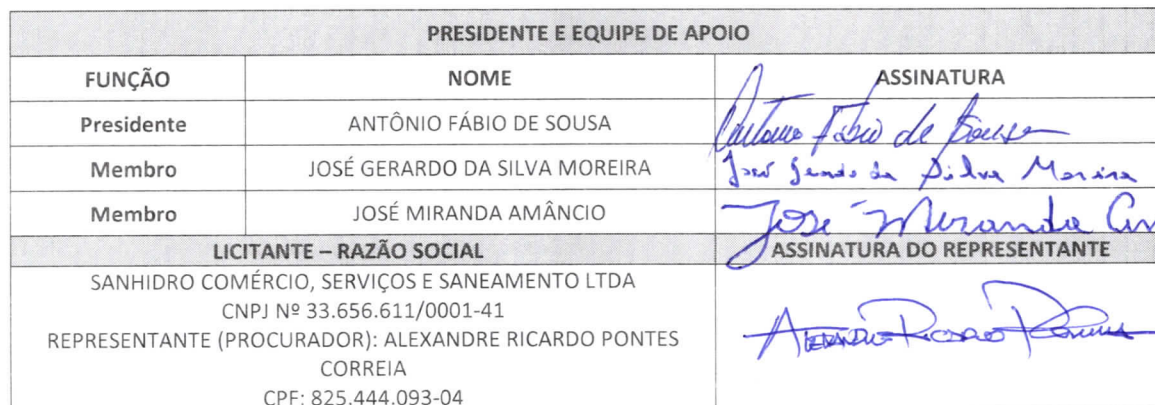 PRESIDENTE E EQUIPE DE APOIO
FUNÇÃO NOME ASSINATURA
Presidente ANTÔNIO FÁBIO DE SOUSA Antonio Fábio de Sousa
Membro JOSÉ GERARDO DA SILVA MOREIRA José Gerardo da Silva Moreira
Membro JOSÉ MIRANDA AMÂNCIO José Miranda Am
LICITANTE – RAZÃO SOCIAL ASSINATURA DO REPRESENTANTE
SANHIDRO COMÉRCIO, SERVIÇOS E SANEAMENTO LTDA
CNPJ Nº 33.656.611/0001-41
REPRESENTANTE (PROCURADOR): ALEXANDRE RICARDO PONTES
CORREIA
CPF: 825.444.093-04